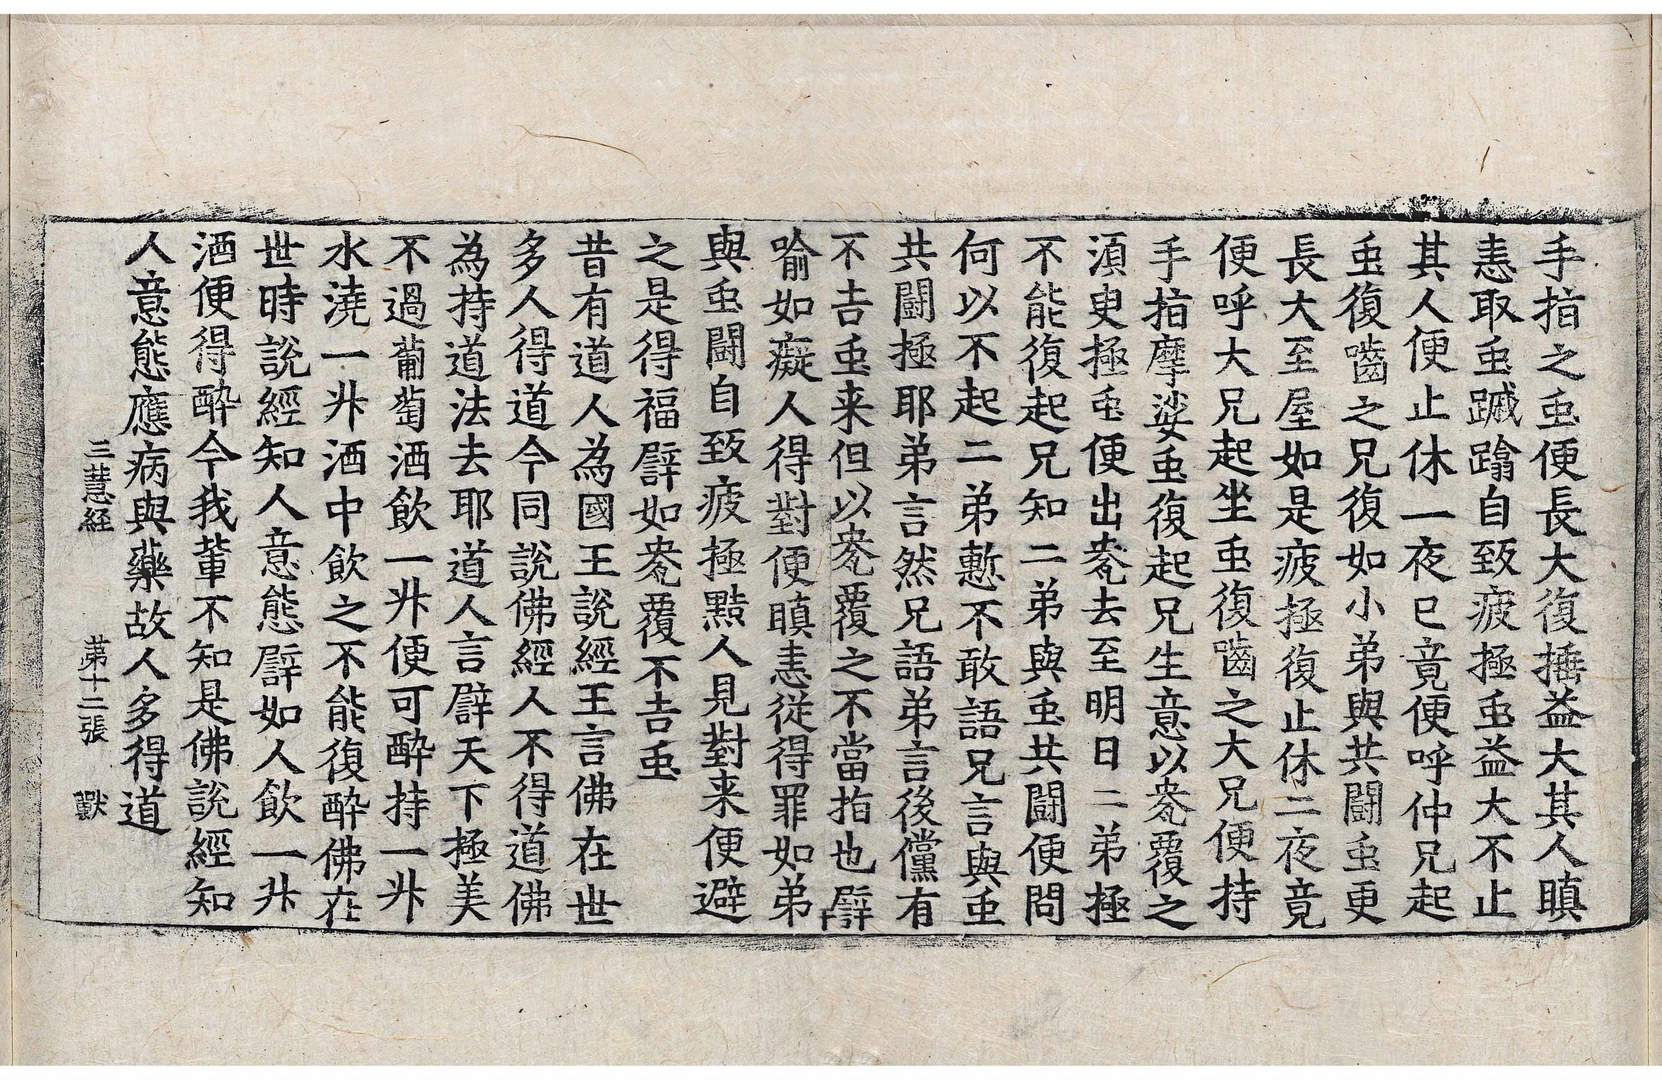 手指之䖝便長大復捶益大其人瞋
恚取䖝蹴蹹自致疲極䖝益大不止
其人便止休一夜已竟便呼仲兄起
䖝復嚙之兄復如小弟與共鬪䖝更
長大至屋如是疲極復止休二夜竟
便呼大兄起坐䖝復嚙之大兄便持
手指摩娑䖝復起兄生意以𡘋覆之
須臾極䖝便出𡘋去至明日二弟極
不能復起兄知二弟與䖝共鬪便問
何以不起二弟慙不敢語兄言與䖝
共鬪極耶弟言然兄語弟言後儻有
不吉䖝来但以𡘋覆之不當指也譬
喻如癡人得對便瞋恚從得罪如弟
與䖝鬪自致疲極黠人見對来便避
之是得福譬如𡘋覆不吉䖝
昔有道人為國王說經王言佛在世
多人得道今同說佛經人不得道佛
為持道法去耶道人言譬天下極美
不過葡萄酒飲一升便可醉持一升
水澆一升酒中飲之不能復醉佛在
世時說經知人意態譬如人飲一升
酒便得醉今我輩不知是佛說經知
人意態應病與藥故人多得道
三慧経 第十二張 獸